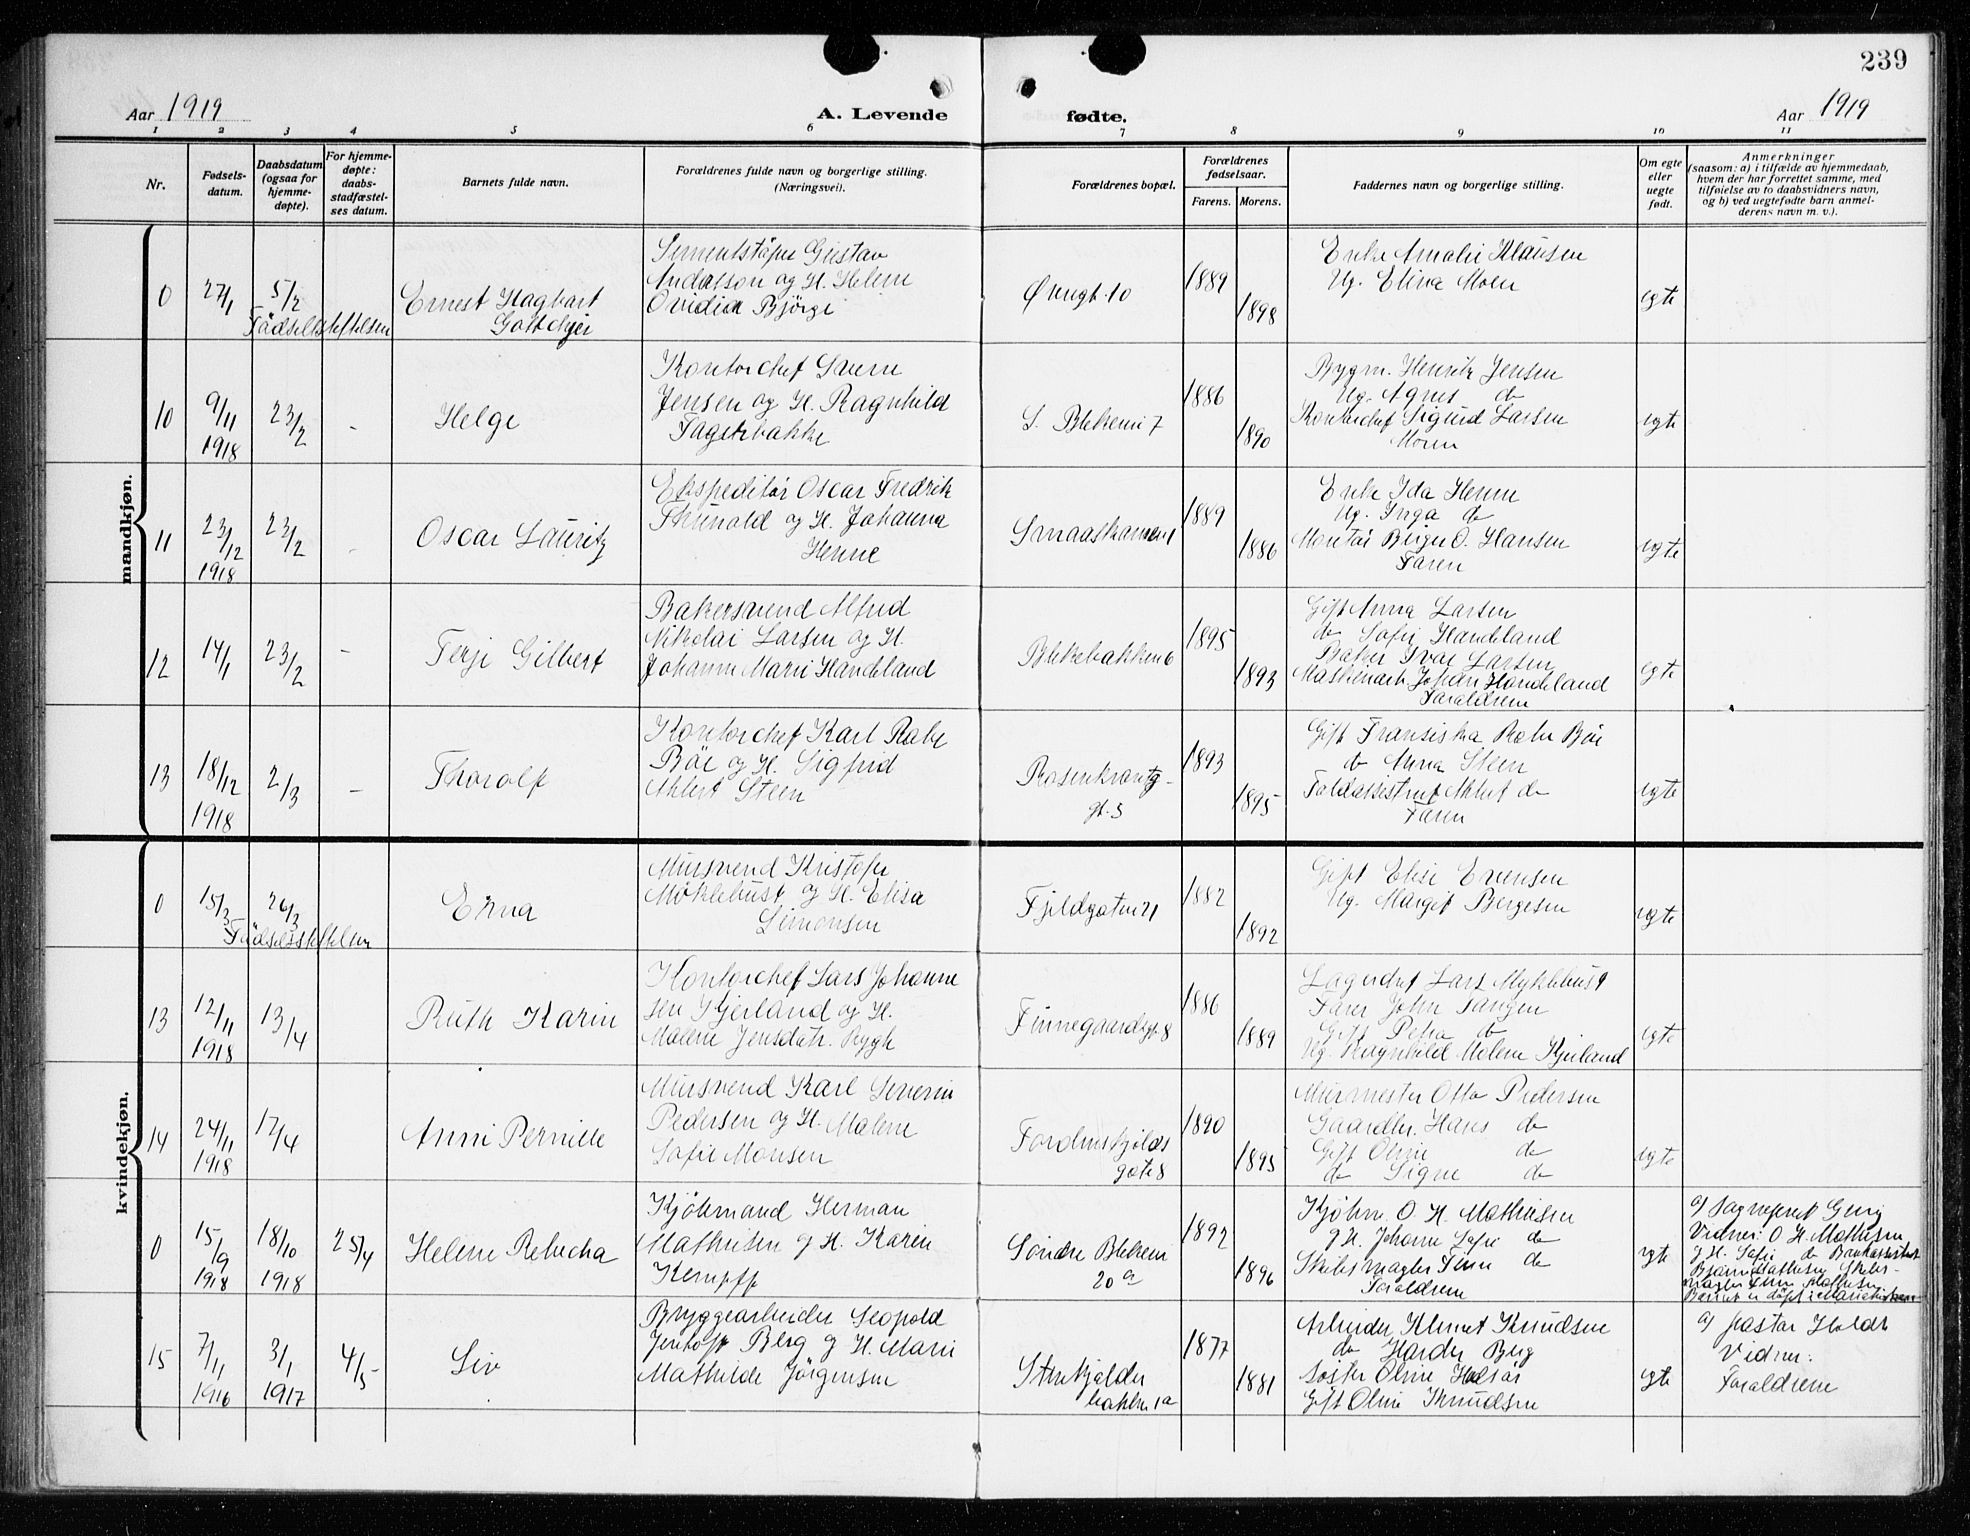 239
Aar 1919
A. Levende fødte.
Aar 1919
1 2 3 4 5 6 7 8 9 10 11
Nr.
Fødsels-
datum.
Daabsdatum
(ogsaa for
hjemme-
døpte).
For hjemme-
døpte:
daabs-
stadfæstel-
ses datum.
Barnets fulde navn.
Forældrenes fulde navn og borgerlige stilling.
(Næringsvei).
Forældrenes bopæl.
Forældrenes
fødselsaar.
Farens. Morens.
Faddernes navn og borgerlige stilling.
Om egte
eller
uegte
født.
Anmerkninger
(saasom: a) i tilfælde av hjemmedaab,
hvem der har forrettet samme, med
tilføielse av to daabsvidners navn,
og b) ved uegtefødte barn anmel-
derens navn m. v.).
mandkjøn.
0
27/1
5/2
Födselsstiftelsen
Ernest Hagbart
Gottchjei
Sementstöper Gustav
Andersson og H. Helene
Ovidia Björge
Øvregt. 10
1889
1898
Enke Amalie Klausen
Ug. Elina Moen
egte
10
9/11
1918
23/2
-
Helge
Kontorchef Sverre
Jensen og H. Ragnhild
Fagerbakke
S. Blekevei 7
1886
1890
Bygm. Henrik Jensen
Ug. Agnes do
Kontorchef Sigurd Larsen
Moren
egte
11
23/12
1918
23/2
-
Oscar Lauritz
Ekspeditör Oscar Fredrik
Thunold og H. Johanna
Henne
Smaaskansen 1
1889
1886
Enke Ida Henne
Ug. Inga do
Montör Birger O. Hansen
Faren
egte
12
14/1
23/2
-
Terje Gilbert
Bakersvend Alfred
Nikolai Larsen og H.
Johanne Marie Handeland
Blekebakken 6
1895
1893
Gift Anna Larsen
do Sofie Handeland
Baker Ivar Larsen
Maskenark Johan Handeland
Foraldrene
egte
13
18/12
1918
2/3
-
Thorolf
Kontorchef Karl Rabe
Böe og H. Sigfrid
Ahlert Steen
Rosenkrantz-
gt. 5
1893
1895
Gift Fransiska Rabe Böe
do Anna Steen
Toldassistent Ahlert do
Faren
egte
kvindekjøn.
0
15/3
26/3
Födselsstiftelsen
Erna
Mursvend Kristofer
Möklebust og H. Elisa
Simonsen
Fjeldgaten 21
1882
1892
Gift Elise Evensen
Ug. Margit Börgesen
egte
13
12/11
1918
13/4
Ruth Karin
Kontorchef Lars Johanne
sen Kjerland og H.
Malene Jensdatr. Rygh
Finnegaardsgt. 8
1886
1889
Lagerchef Lars Myklebust
Farer John Tangen
Gift Petra do
Ug. Ragnhild Malene Kjerland
egte
14
24/11
1918
17/4
Anni Pernille
Mursvend Karl Severin
Pedersen og H. Malene
Sofie Monsen
Tordenskjolds
gate 8
1890
1895
Murmester Otto Pedersen
Gaardbr. Hans do
Gift Oline do
do Signe do
egte
0
15/9
1918
18/10
1918
25/4
Helene Rebecka
Kjöbmand Herman
Mathiesen og H. Karen
Kempff
Söndre Blekevei
20 a
1892
1896
Kjöbm. O. H. Mathiesen
g H. Johanne Sofie do
Skibsmægler Finn do
Foraldrene
egte
a) Sogneprest Georg
Vidner: O H. Mathiesen
g H. Sofie do Bankassistent
Bjarne Mathiesen Skibs-
mægler Finn Mathiesen
Barnet er döpt i Mariakirken
15
7/11
1916
3/1
1917
4/5
Siv
Bryggearbeider Leopold
Jentoft Berg g H. Marie
Mathilde Jörgensen
Strekjelder
bakken 1a
1877
1881
Arbeider Klemet Knudsen
do Harder Berg
Söster Oline
Gift Oline Knudsen
egte
a) Pastor Holdt
Vidner:
Foraldrene